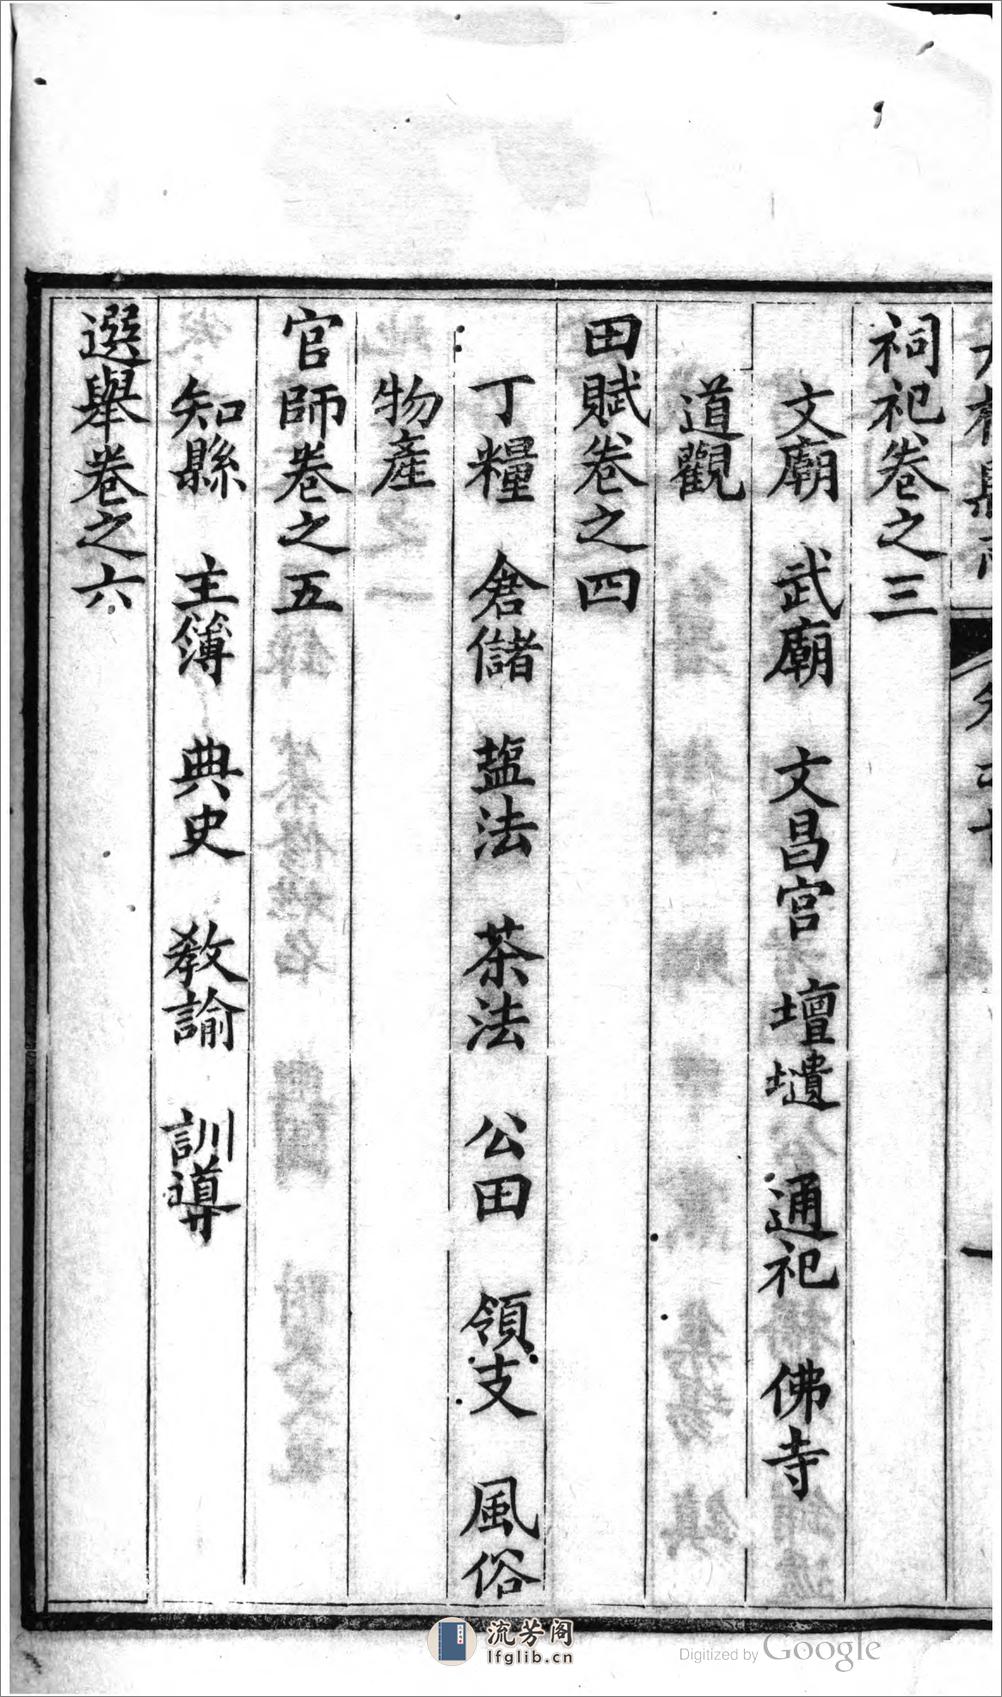 祠祀卷之三
文廟　武廟　文昌宮　壇壝　通祀　佛寺
道觀
田賦卷之四
丁糧　倉儲　塩法　茶法　公田　領支　風俗
物產
官師卷之五
知縣　主簿　典史　教諭　訓導
選舉卷之六
流芳阁
lfglib.cn
Digitized by Google